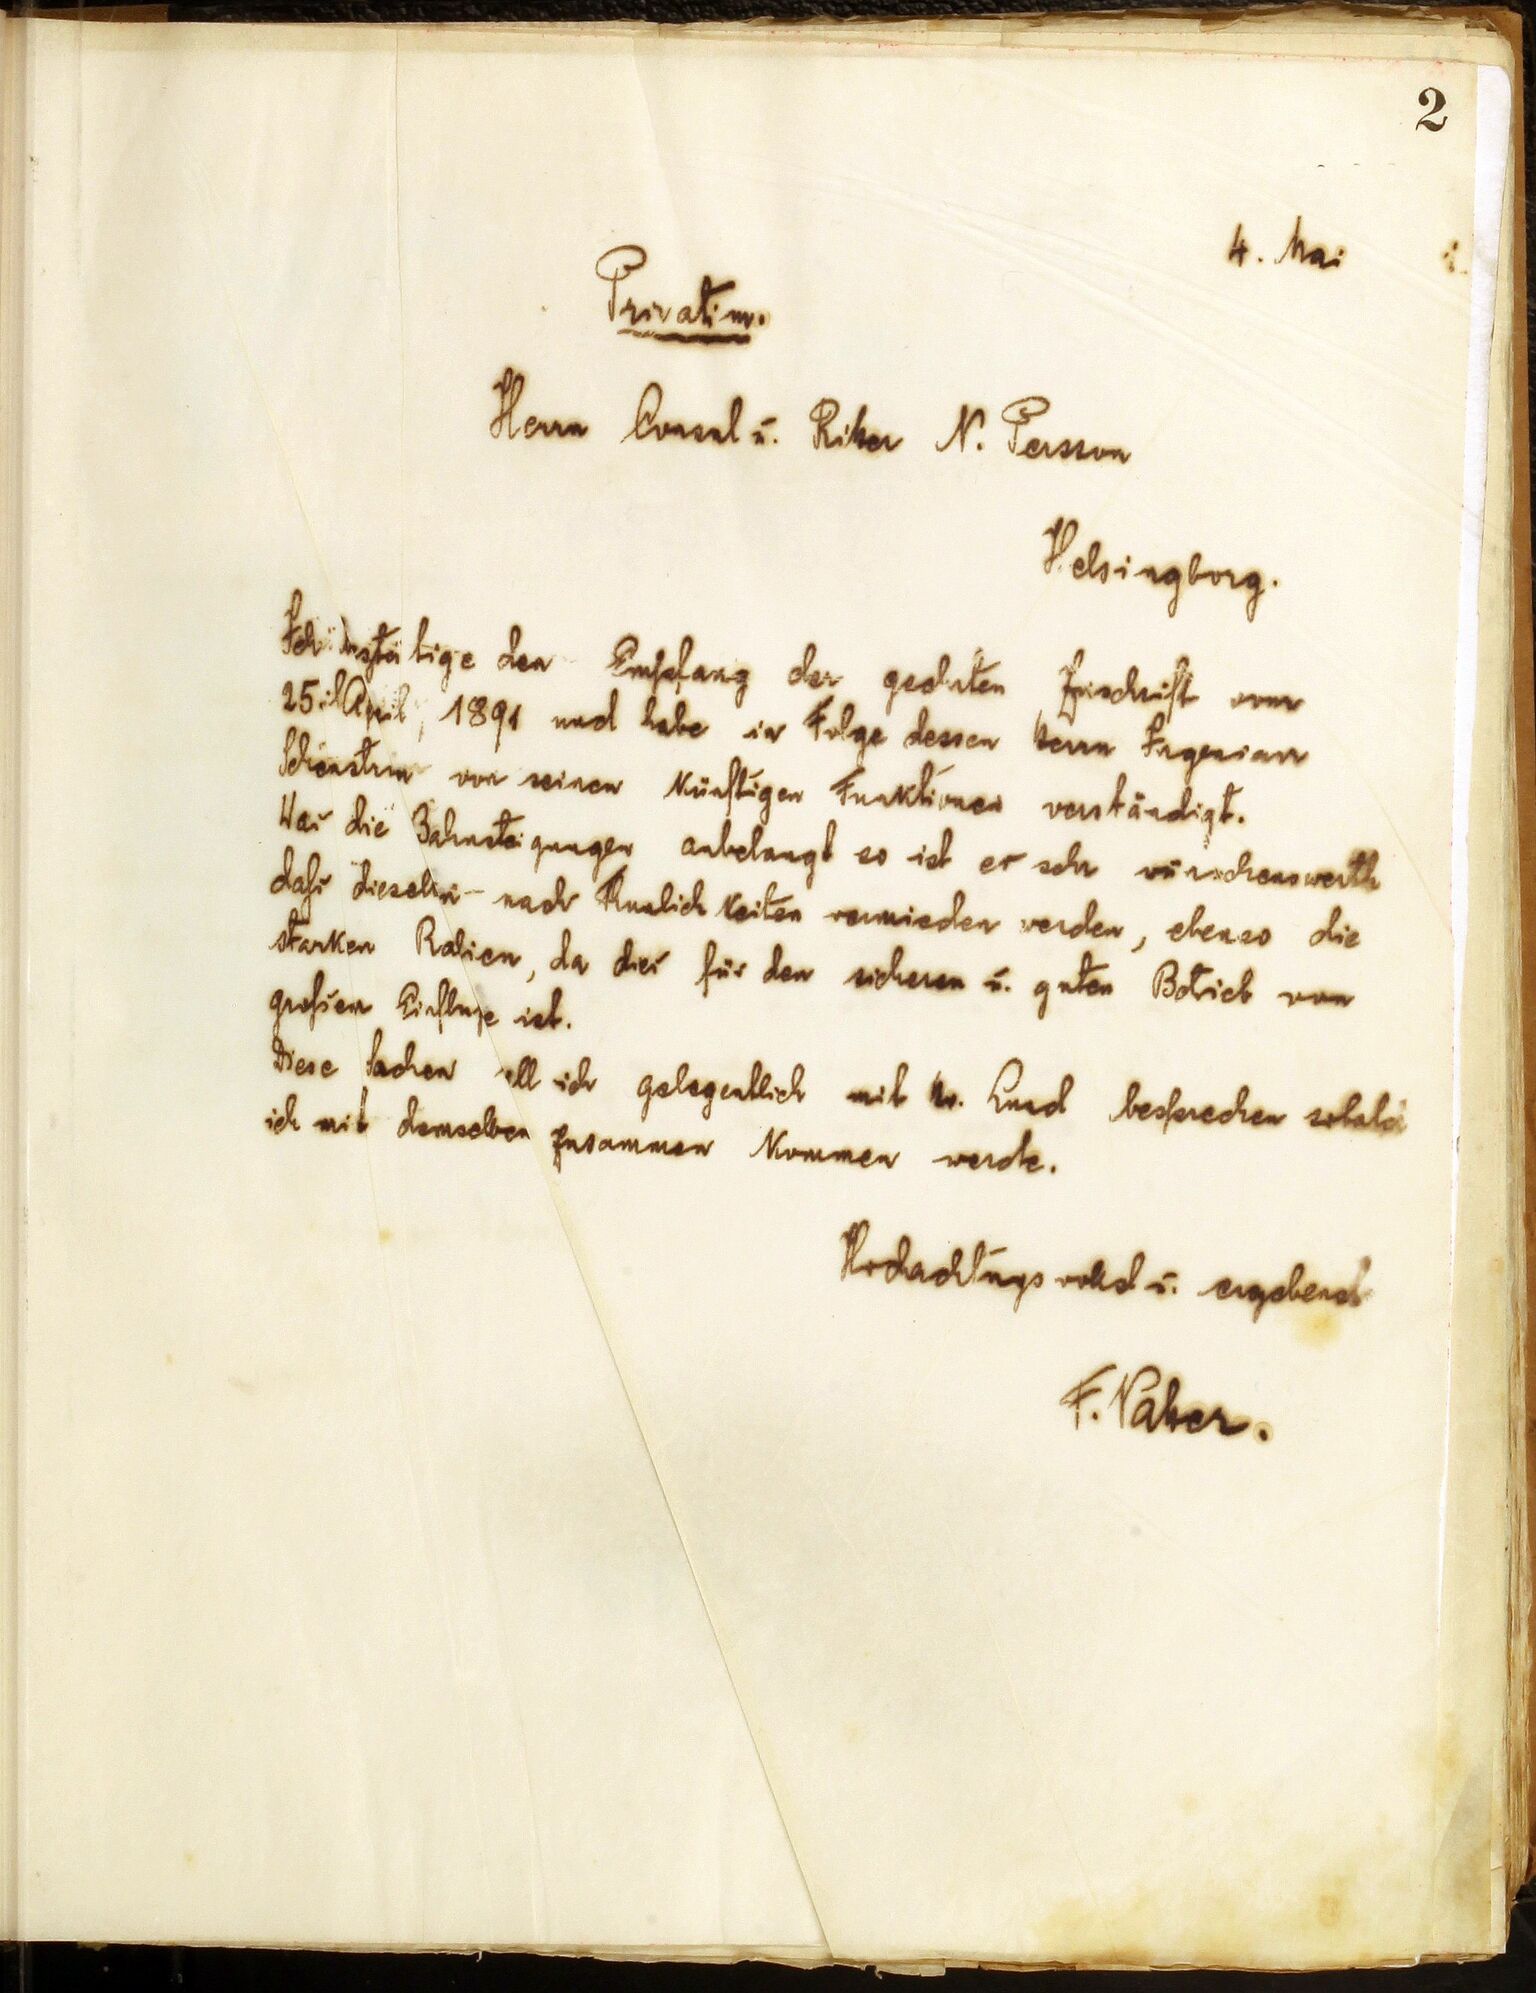 2
4. Mai
Privatim.
Herrn Consul u. Ritter N. Persson
Helsingborg.
Ich bestätige den Empfang der geehrten Zuschrift vom
25 April, 1891 und habe in Folge dessen Herrn Ingenieur
von seinen Künftigen Funktionen verständigt.
Was die Bahnsteigungen anbelangt so ist es sehr wünschenswerth
dass dieselben nach Thunlichkeiten vermieden werden, ebenso die
starken Radien, da dies für den sicheren u. guten Betrieb von
grossem Einfluse ist.
Diese Sachen will ich gelegentlich mit Hr. Lund besprechen sobald
ich mit demselben zusammen Kommen werde.
Hochachtungsvollst u. ergebenst
F. Náher.